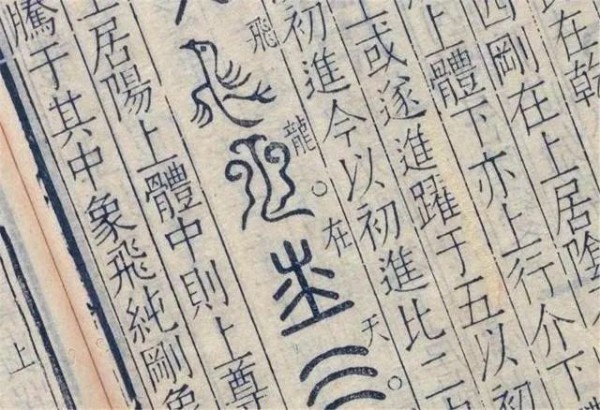 在乾
四剛在上居陰
上體下亦上行介下
上或遂進躍于五以初
初進今以初進比二
飛龍。在天。
上居陽上體中則上尊
騰于其中象飛純剛象
上